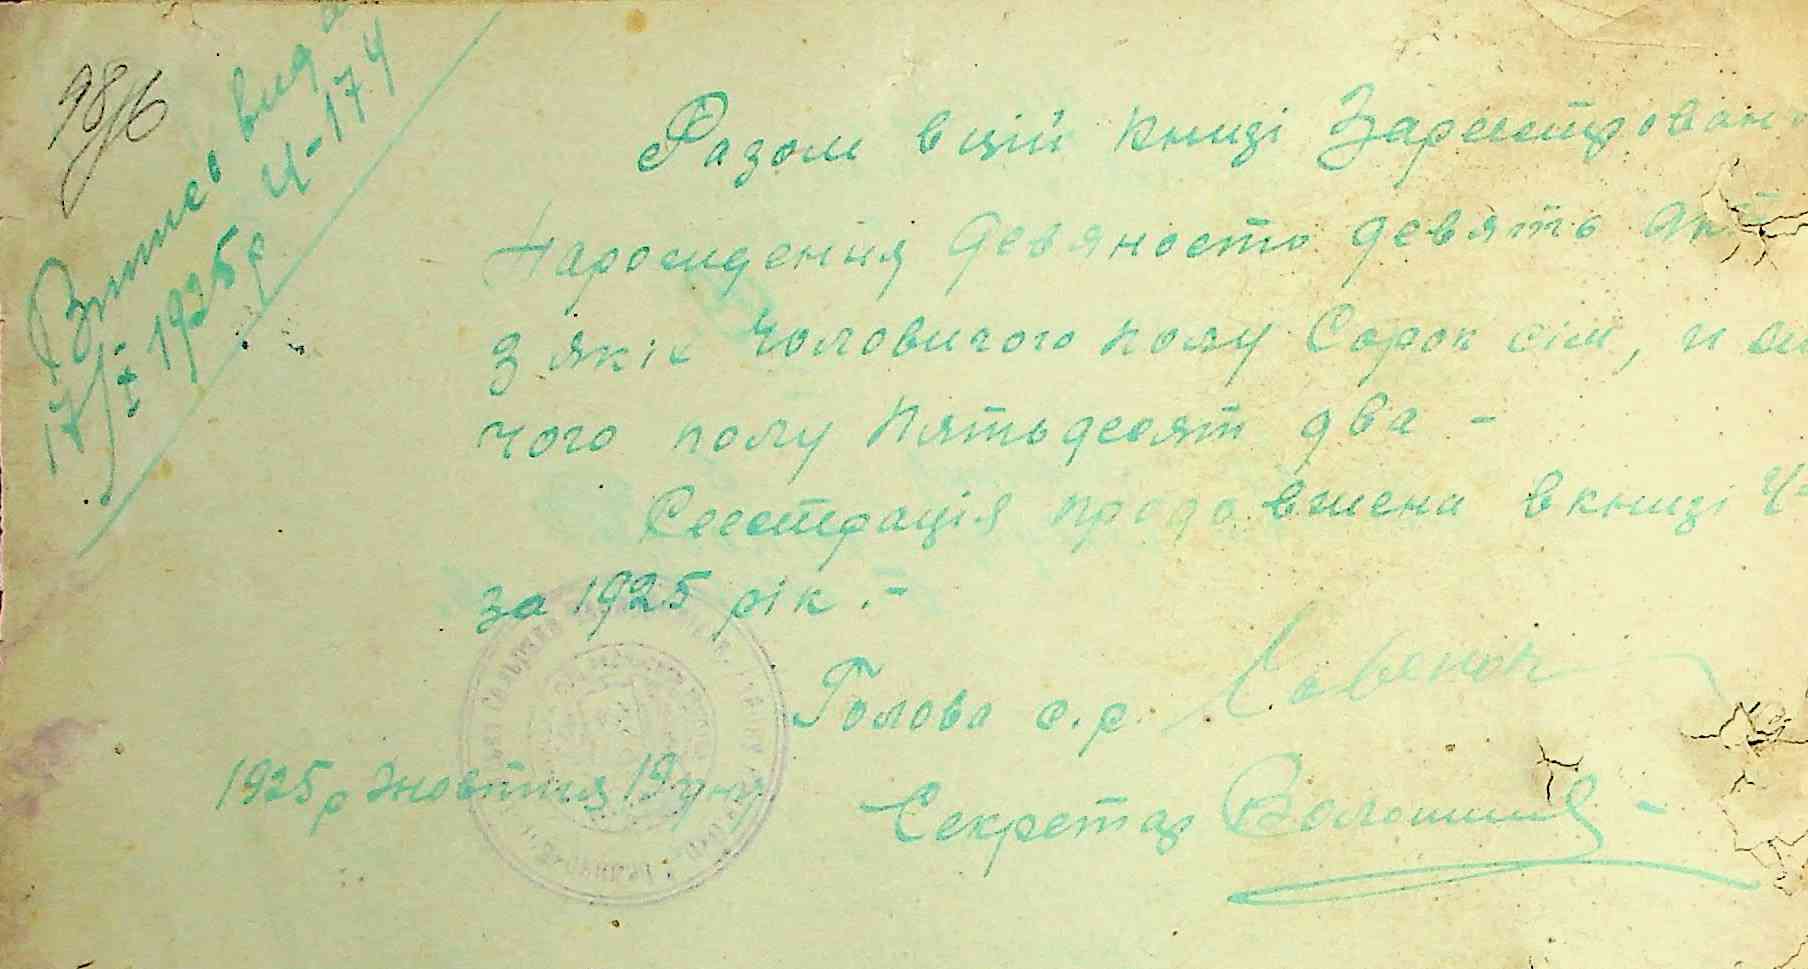 98/16
Витяг вида
17/X 1925 р Ч-174
Разом в цій книзі Зареєстрован
Народження Девяносто девять
З якіх Чоловичого полу Сорок сім, и
чого полу Пятьдесят два -
Реєстрація продовжена в книзі
за 1925 рік. -
Голова с.р. Савенок
1925 р Жовтня 19 дня
Секретар Волошин -